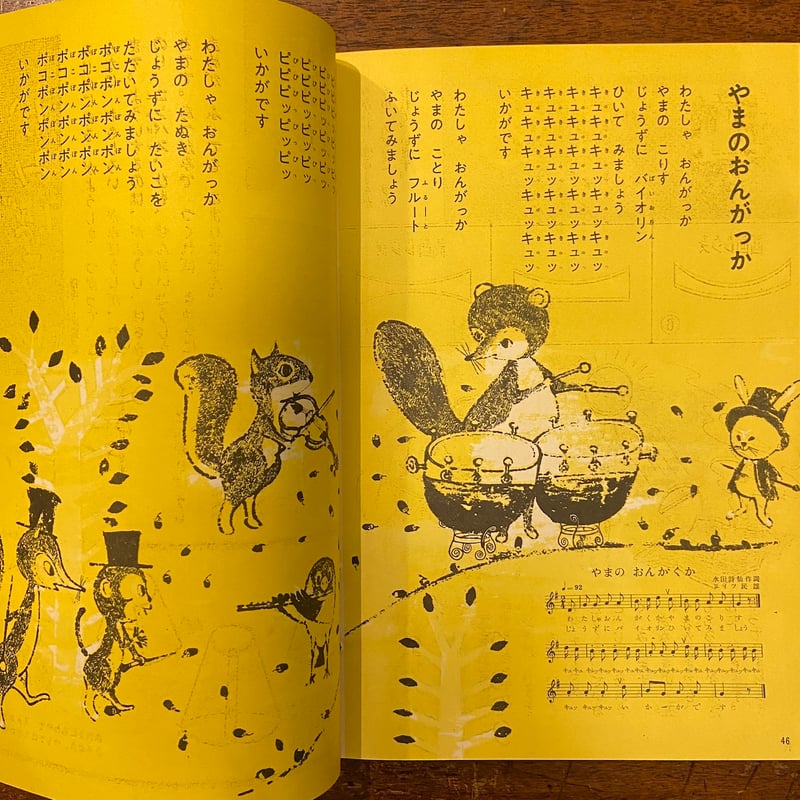 やまのおんがっか
わたしゃ おんがっか
やまの こりす
じょうずに バイオリン
ばいおりん
ひいて みましょう
キュキュキュッキュッキュッ
キュキュキュッキュッキュッ
キュキュキュッキュッキュッ
キュキュキュッキュッキュッ
いかがです
わたしゃ おんがっか
やまの ことり
じょうずに フルート
ふるーと
ふいてみましょう
やまの おんがくか
水田詩仙作詞
ドイツ民謡
♩=92
わたしゃおん がくかやまのこりす
じょうずにバイオリンひいてみましょう
いかがです
46
ピピピッピッピッ
ピピピッピッピッ
ピピピッピッピッ
いかがです
わたしゃ おんがっか
やまの たぬき
じょうずに たいこを
たたいてみましょう
ポコポンポンポン
ぽこぽんぽんぽん
ポコポンポンポン
ぽこぽんぽんぽん
ポコポンポンポン
ぽこぽんぽんぽん
ポコポンポンポン
ぽこぽんぽんぽん
いかがです